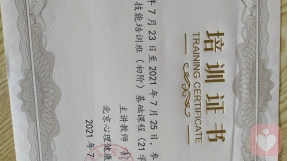 培训证书
TRAINING CERTIFICATE
年 7 月 23 日 至 2021 年 7 月 25 日 参
技能培训班（初阶）基础课程（21 学
主讲教师
北京心理健康
2021 年 7